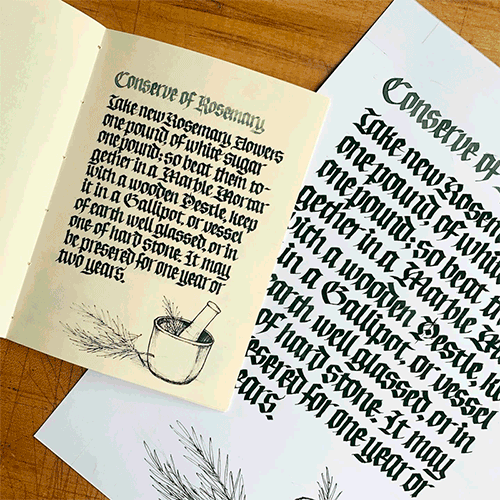 Conserve of Rosemary
Take new Rosemary Flowers
one pound of white sugar
one pound; so beat them to-
gether in a Marble Mortar
with a wooden Pestle, keep
it in a Gallipot, or vessel
of earth well glassed, or in
one of hard stone. It may
be presered for one year or
two years.
Conserve of
Take new Rosem
one pound of whi
one pound; so beat
gether in a Marble M
with a wooden Pestle, k
in a Gallipot, or vessel
earth well glassed, or in
of hard stone. It may
presered for one year or
ears.